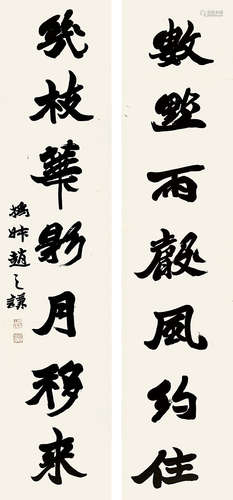 數點雨聲風約住
幾枝華影月移来
撝叔趙之謙